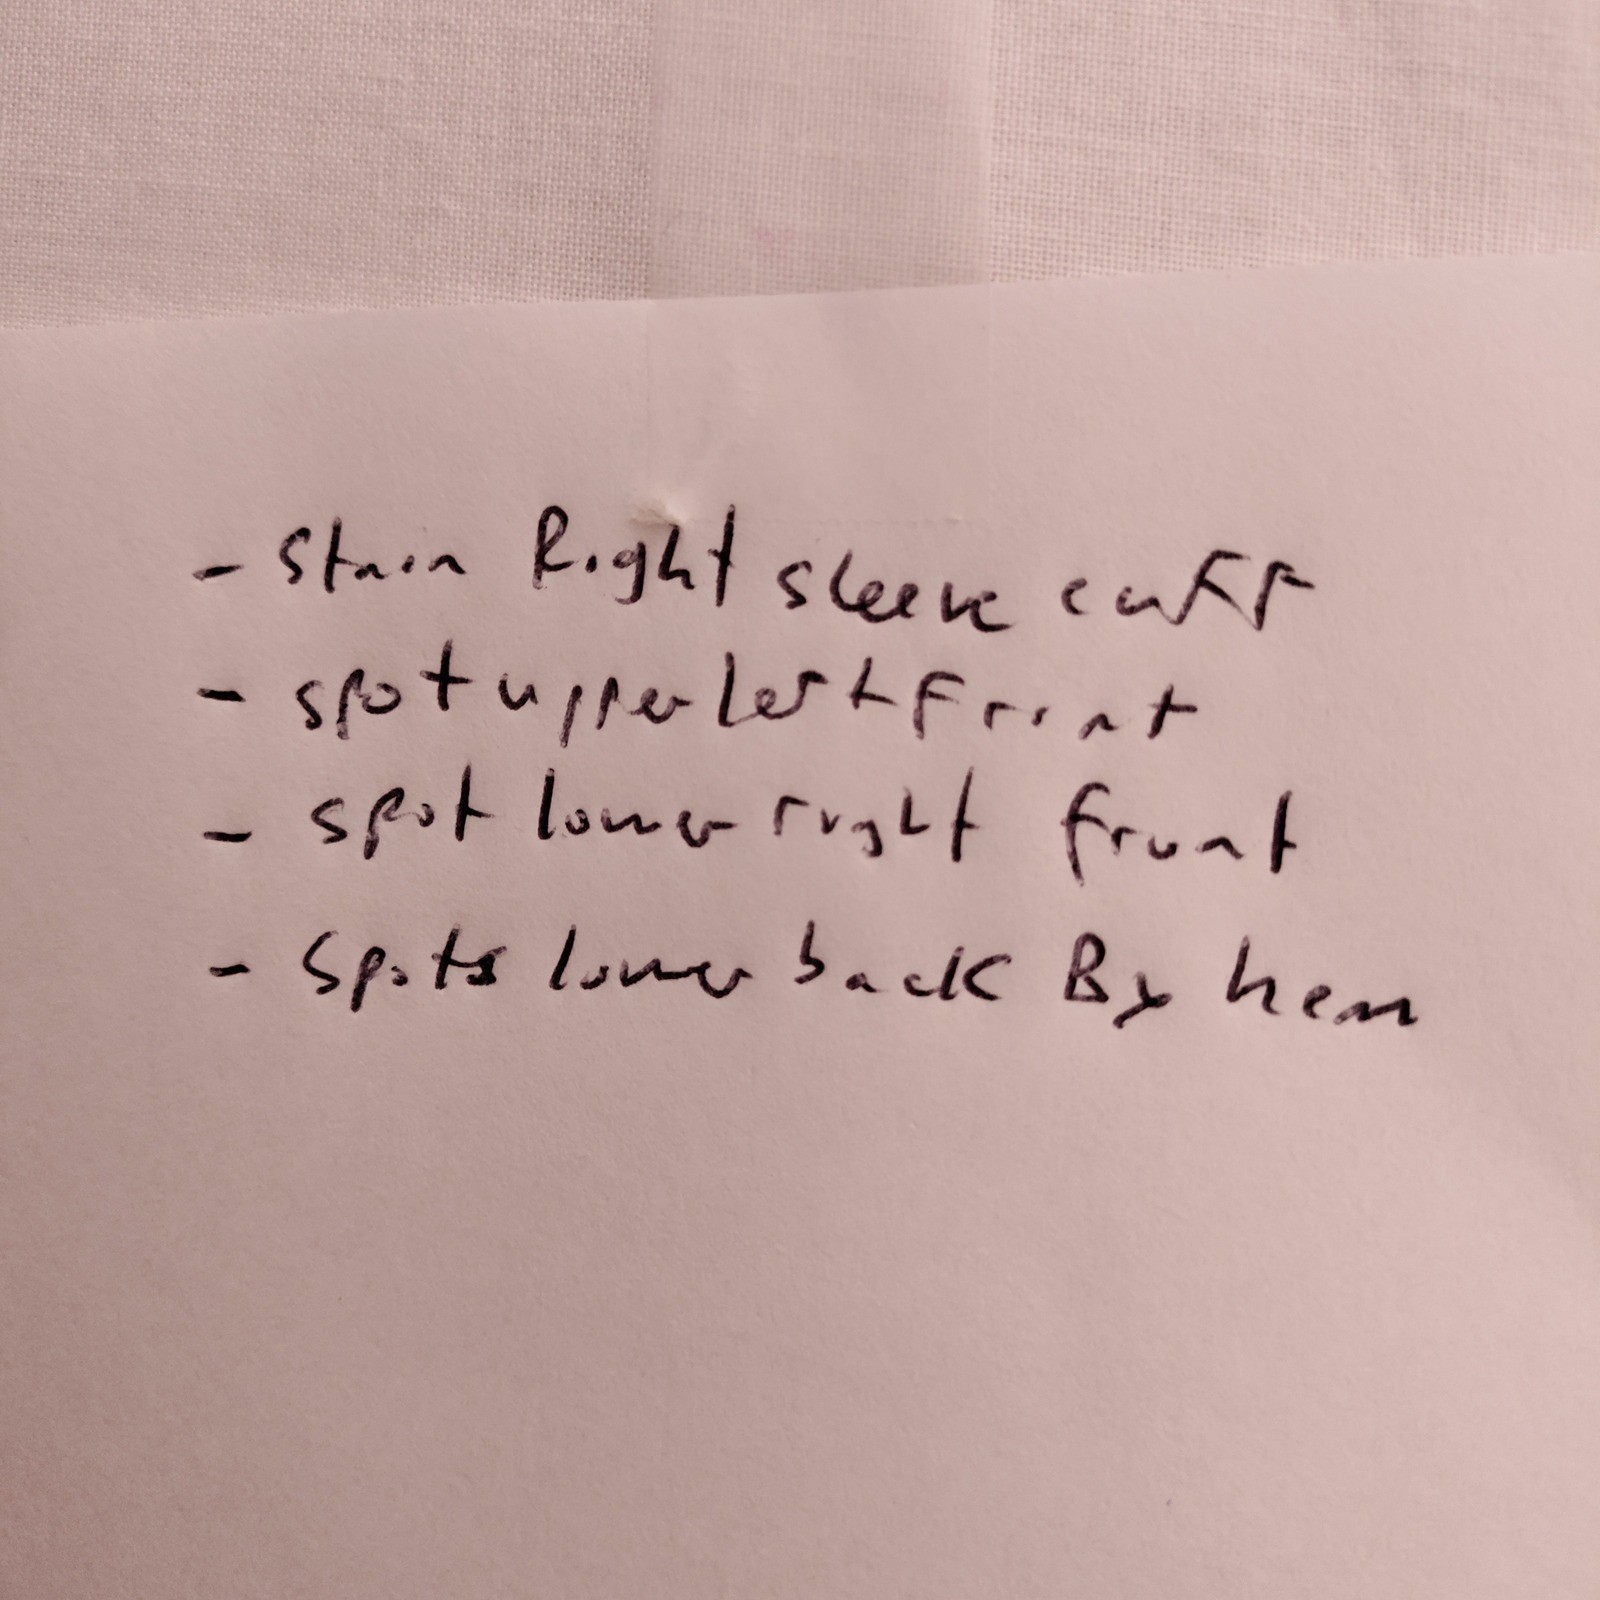 - Stain Right sleeve cuff
- spot upper left Front
- spot lower right front
- Spots lower back By hem